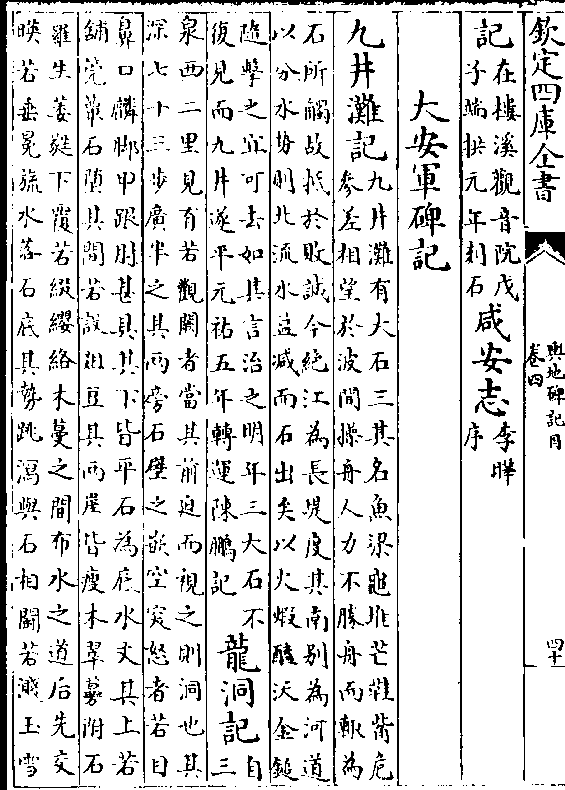 欽定四庫全書
輿地碑記目
卷四
四十
記
在樓溪觀音院戊
子端拱元年刻石
咸安志
李曄
序
大安軍碑記
九井灘記
九井灘有大石三其名魚梁龜堆芒鞋觜危
參差相望於波間操舟人力不勝舟而輒為
石所觸故抵於敗誠今絶江為長堤度其南别為河道
以分水勢則北流水益减而石出矣以火煆醯沃金鎚
隨擊之宜可去如其言治之明年三大石不
復見而九井遂平元祐五年轉運陳鵬記
龍洞記
自
三
泉西二里見有若觀闕者當其前迫而視之則洞也其
深七十三步廣半之其兩旁石壁之欹空窾怒者若目
鼻口麟脚甲跟肘甚具其下皆平石為底水文其上若
舖莞簟石墮其間若設俎豆其兩崖皆瘦木翠蔓附石
羅生萎蕤下覆若綴纓絡木蔓之間布水之道后先交
暎若垂冕旒水落石底其勢跳瀉與石相鬭若濺玉雪